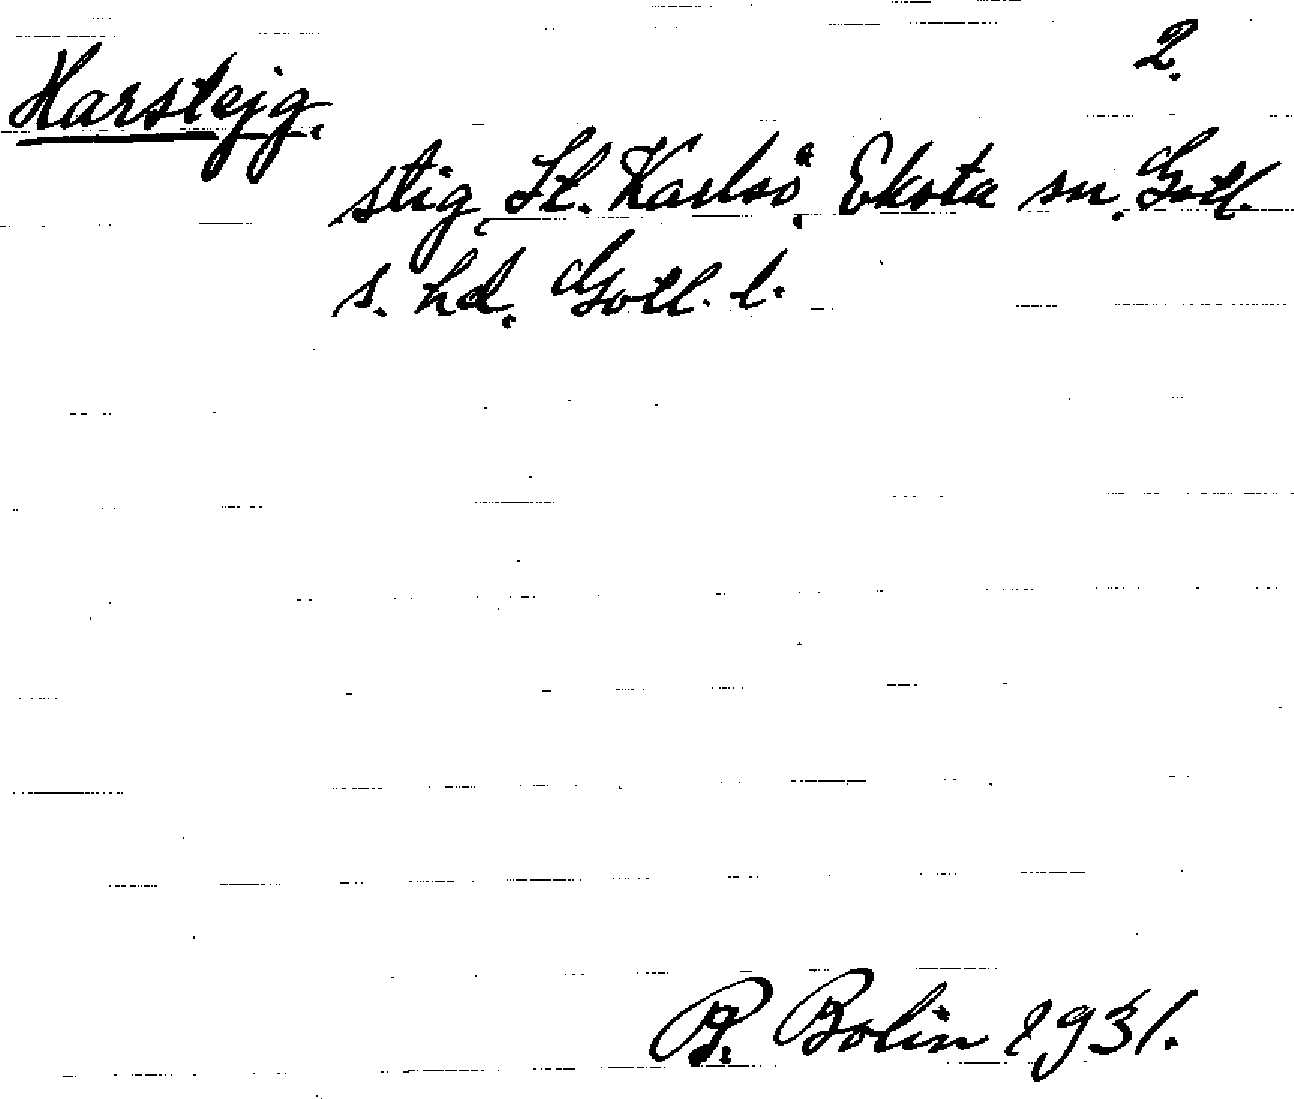 2.
Harstejg.
stig, St. Karlsö, Eksta sn, Gotl.
s. hd. Gotl. l.
P. Bolin 1931.